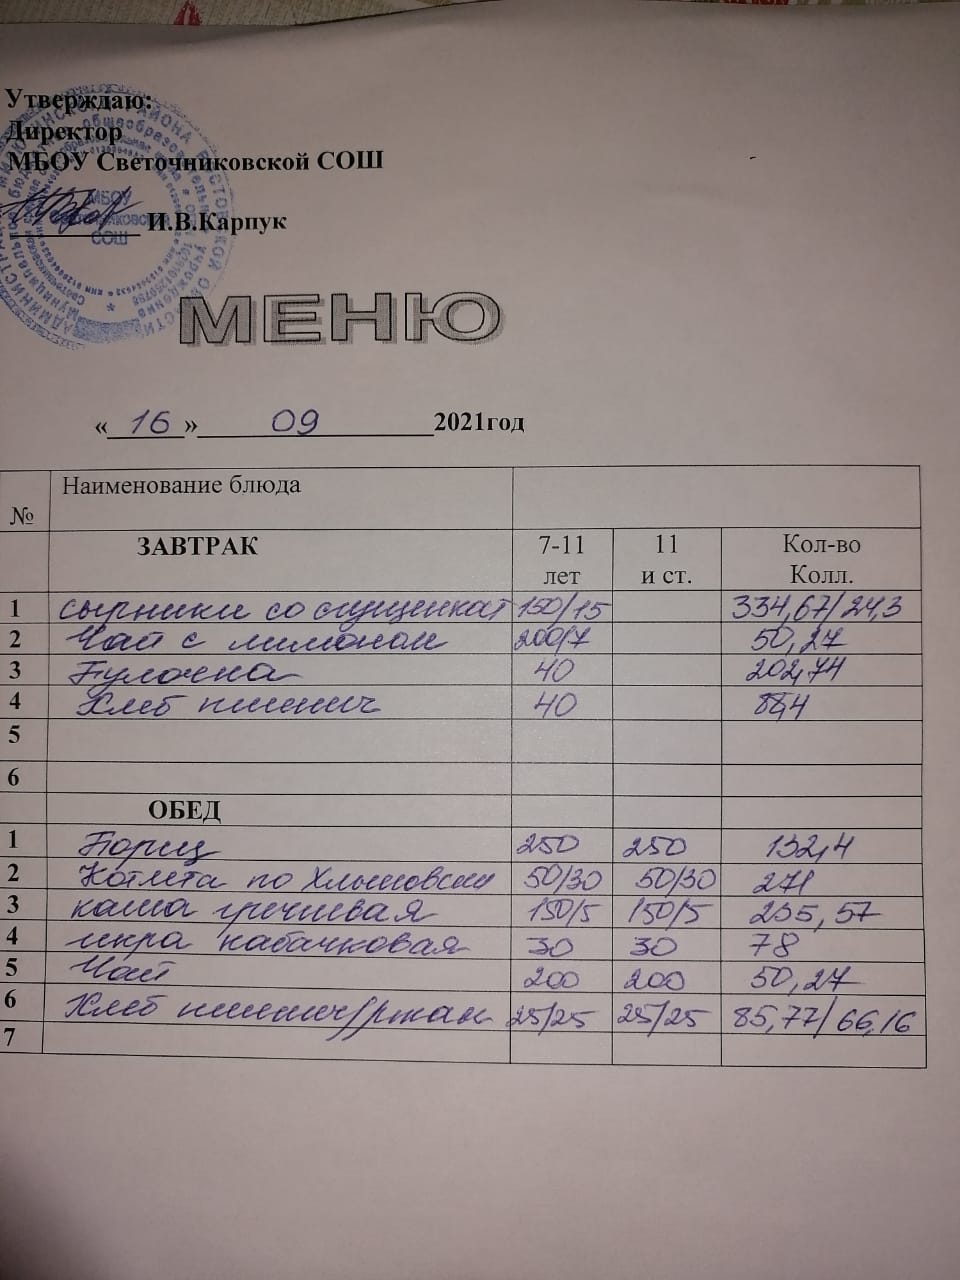 Утверждаю:
Директор
МБОУ Светочниковской СОШ
И.В.Карпук
МБОУ
СОШ
МЕНЮ
« 16 » 09 2021год
№ Наименование блюда
ЗАВТРАК 7-11 лет 11 и ст. Кол-во Колл.
1 сырники со сгущенкой 150/15 334,67/24,3
2 Чай с лимоном 200/7 50,27
3 Булочка 40 202,74
4 Хлеб пшенич 40
5
6
ОБЕД
1 Борщ 250 250 132,4
2 Котлета по Хлыновски 50/30 50/30 271
3 каша гречневая 150/5 150/5 235,57
4 икра кабачковая 30 30 78
5 Чай 200 200 50,27
6 Хлеб пшенич/ржан 25/25 25/25 85,77/66,16
7